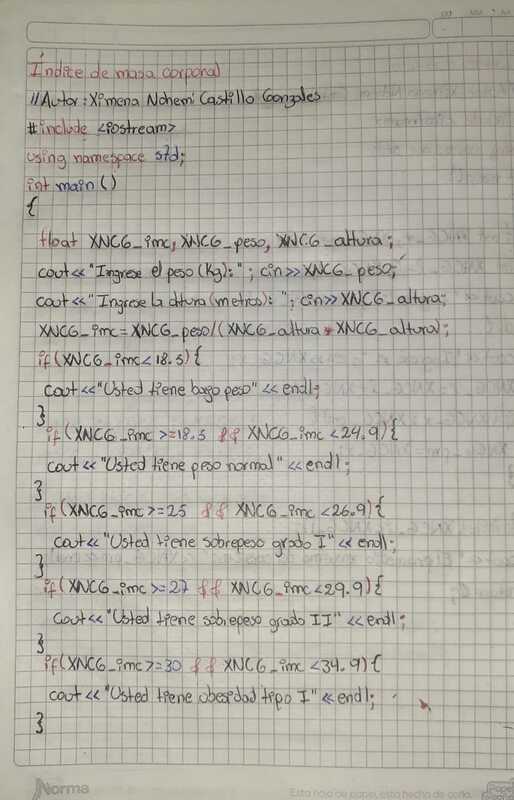 Índice de masa corporal
//Autor: Ximena Nohemi Castillo Gonzales
#include <iostream>
using namespace std;
int main()
{
float XNCG_imc, XNCG_peso, XNCG_altura;
cout<<"Ingrese el peso (Kg):"; cin>>XNCG_peso;
cout<<"Ingrese la altura (metros): "; cin>>XNCG_altura;
XNCG_imc=XNCG_peso/(XNCG_altura * XNCG_altura);
if(XNCG_imc<18.5){
cout<<"Usted tiene bago peso"<<endl;
}
if(XNCG_imc >=18.5 && XNCG_imc <24.9){
cout<<"Usted tiene peso normal"<<endl;
}
if(XNCG_imc>=25 && XNCG_imc <26.9){
cout<<"Usted tiene sobrepeso grado I"<<endl;
}
if(XNCG_imc>=27 && XNCG_imc<29.9){
cout<<"Usted tiene sobrepeso grado II"<<endl;
}
if(XNCG_imc>=30 && XNCG_imc<34.9){
cout<<"Usted tiene obesidad tipo I"<<endl;
}
Norma
Esta hoja de papel, esta hecha de caña.